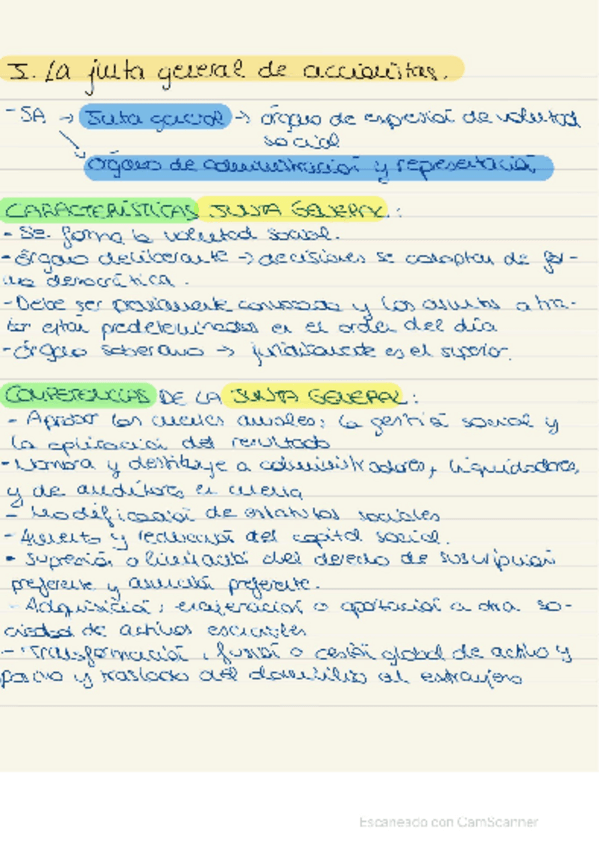 I. La junta general de accionistas.
- SA → Junta general → órgano de expresión de voluntad
social
órgano de administración y representación
CARACTERÍSTICAS JUNTA GENERAL:
- Se forma la voluntad social.
- Órgano deliberante → decisiones se adoptan de for-
ma democrática.
- Debe ser previamente convocada y los asuntos a tra-
tar están predeterminados en el orden del día
- Órgano soberano → jurídicamente es el superior.
COMPETENCIAS DE LA JUNTA GENERAL:
- Aprobar las cuentas anuales, la gestión social y
la aplicación del resultado
- Nombra y destituye a administradores, liquidadores,
y de auditores en cuenta
- Modificación de estatutos sociales
- Aumento y reducción del capital social.
- Supresión o limitación del derecho de suscripción
preferente y asunción preferente.
- Adquisición, enajenación o aportación a otra so-
ciedad de activos esenciales
- Transformación, fusión o cesión global de activo y
pasivo y traslado del domicilio al extranjero
Escaneado con CamScanner